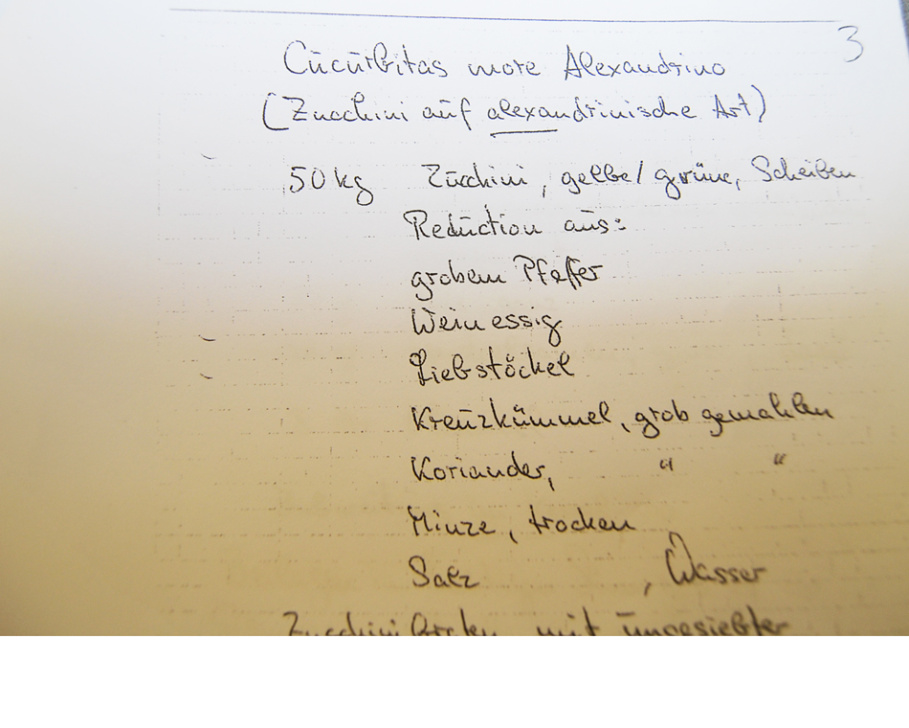 3
Cucurbitas more Alexandrino
(Zucchini auf alexandrinische Art)
50 kg Zucchini, gelbe/grüne, Scheiben
Reduction aus:
grobem Pfeffer
Weinessig
Liebstöckel
Kreuzkümmel, grob gemahlen
Koriander, " "
Minze, trocken
Salz , Wasser
Zucchini mit ungesiebter